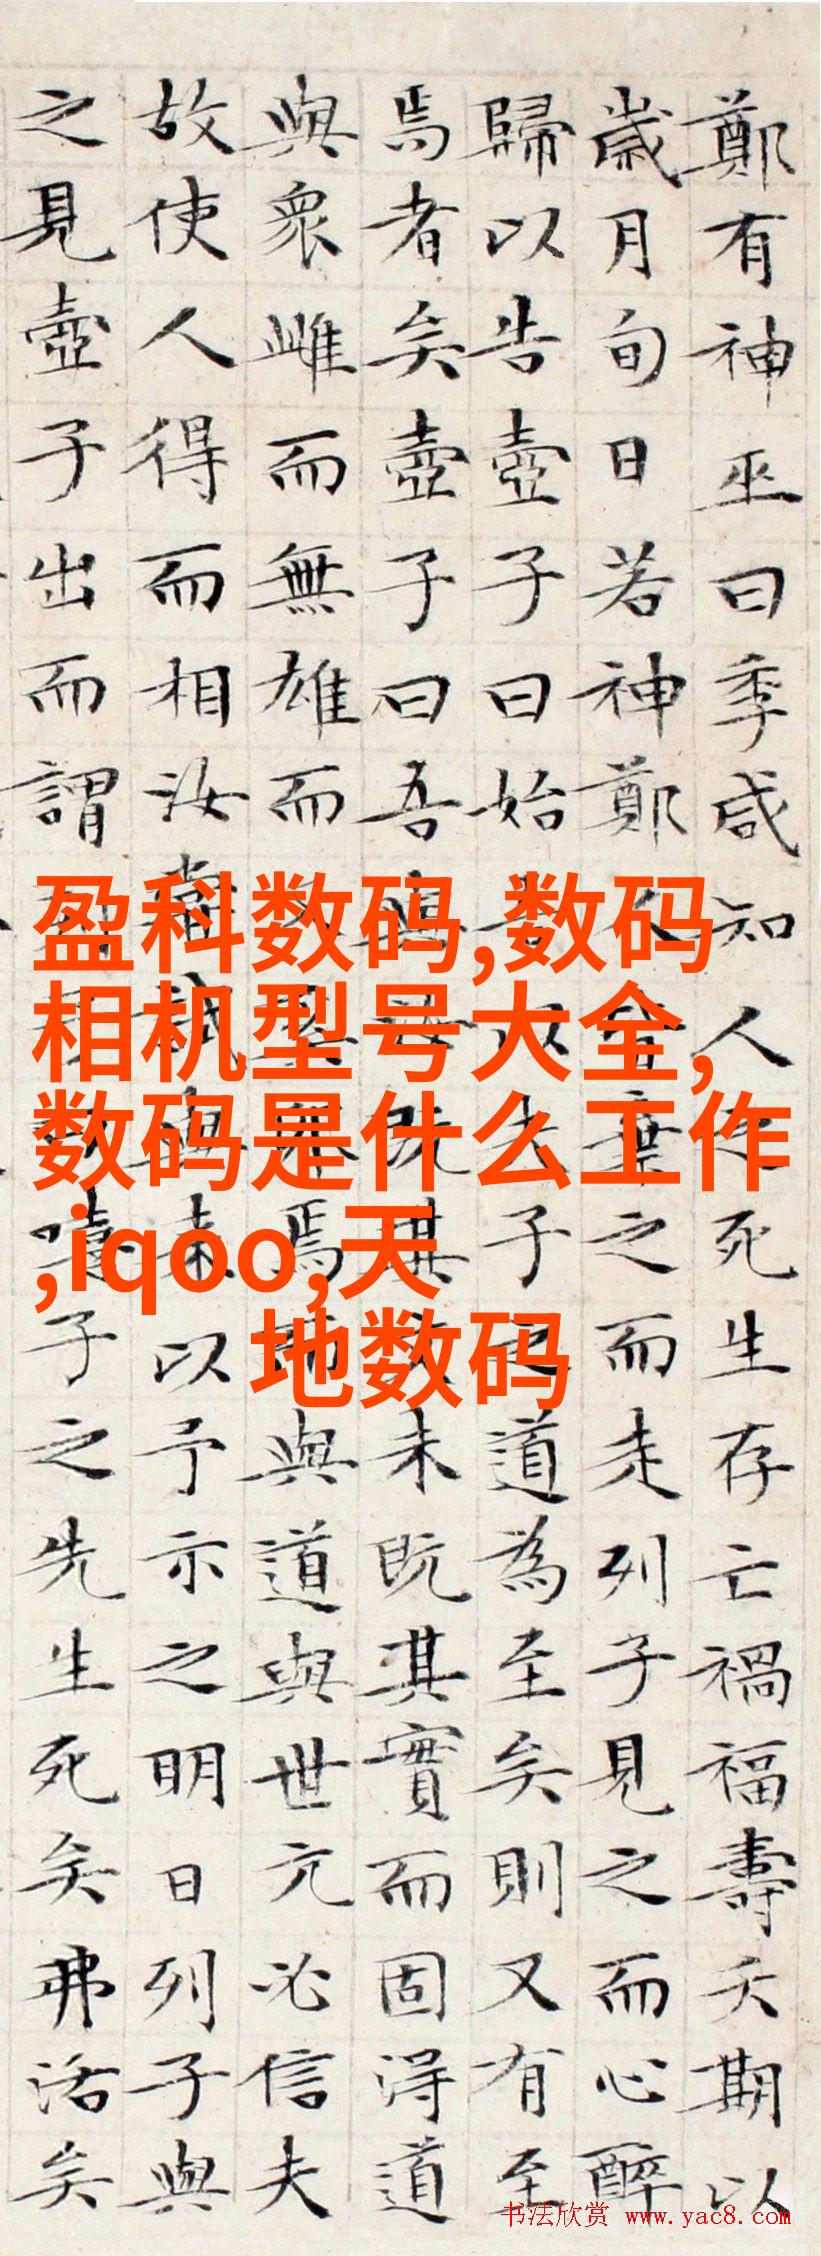 鄭有神巫曰季咸知人之死生存亡禍福壽夭期以
歲月旬日若神鄭人皆棄之而走列子見之而心醉
歸以告壺子曰始吾以夫子之道為至矣則又有至
焉者矣壺子曰吾與汝既其文未既其實而固得道
與眾雌而無雄而又奚卵焉而與道與世亢必信夫
故使人得而相汝嘗試與來以予示之明日列子與
之見壺子出而謂列子曰嘻子之先生死矣弗活矣
盈科数码,数码
相机型号大全,
数码是什么工作
,iqoo,天
地数码
书法欣赏 www.yac8.com